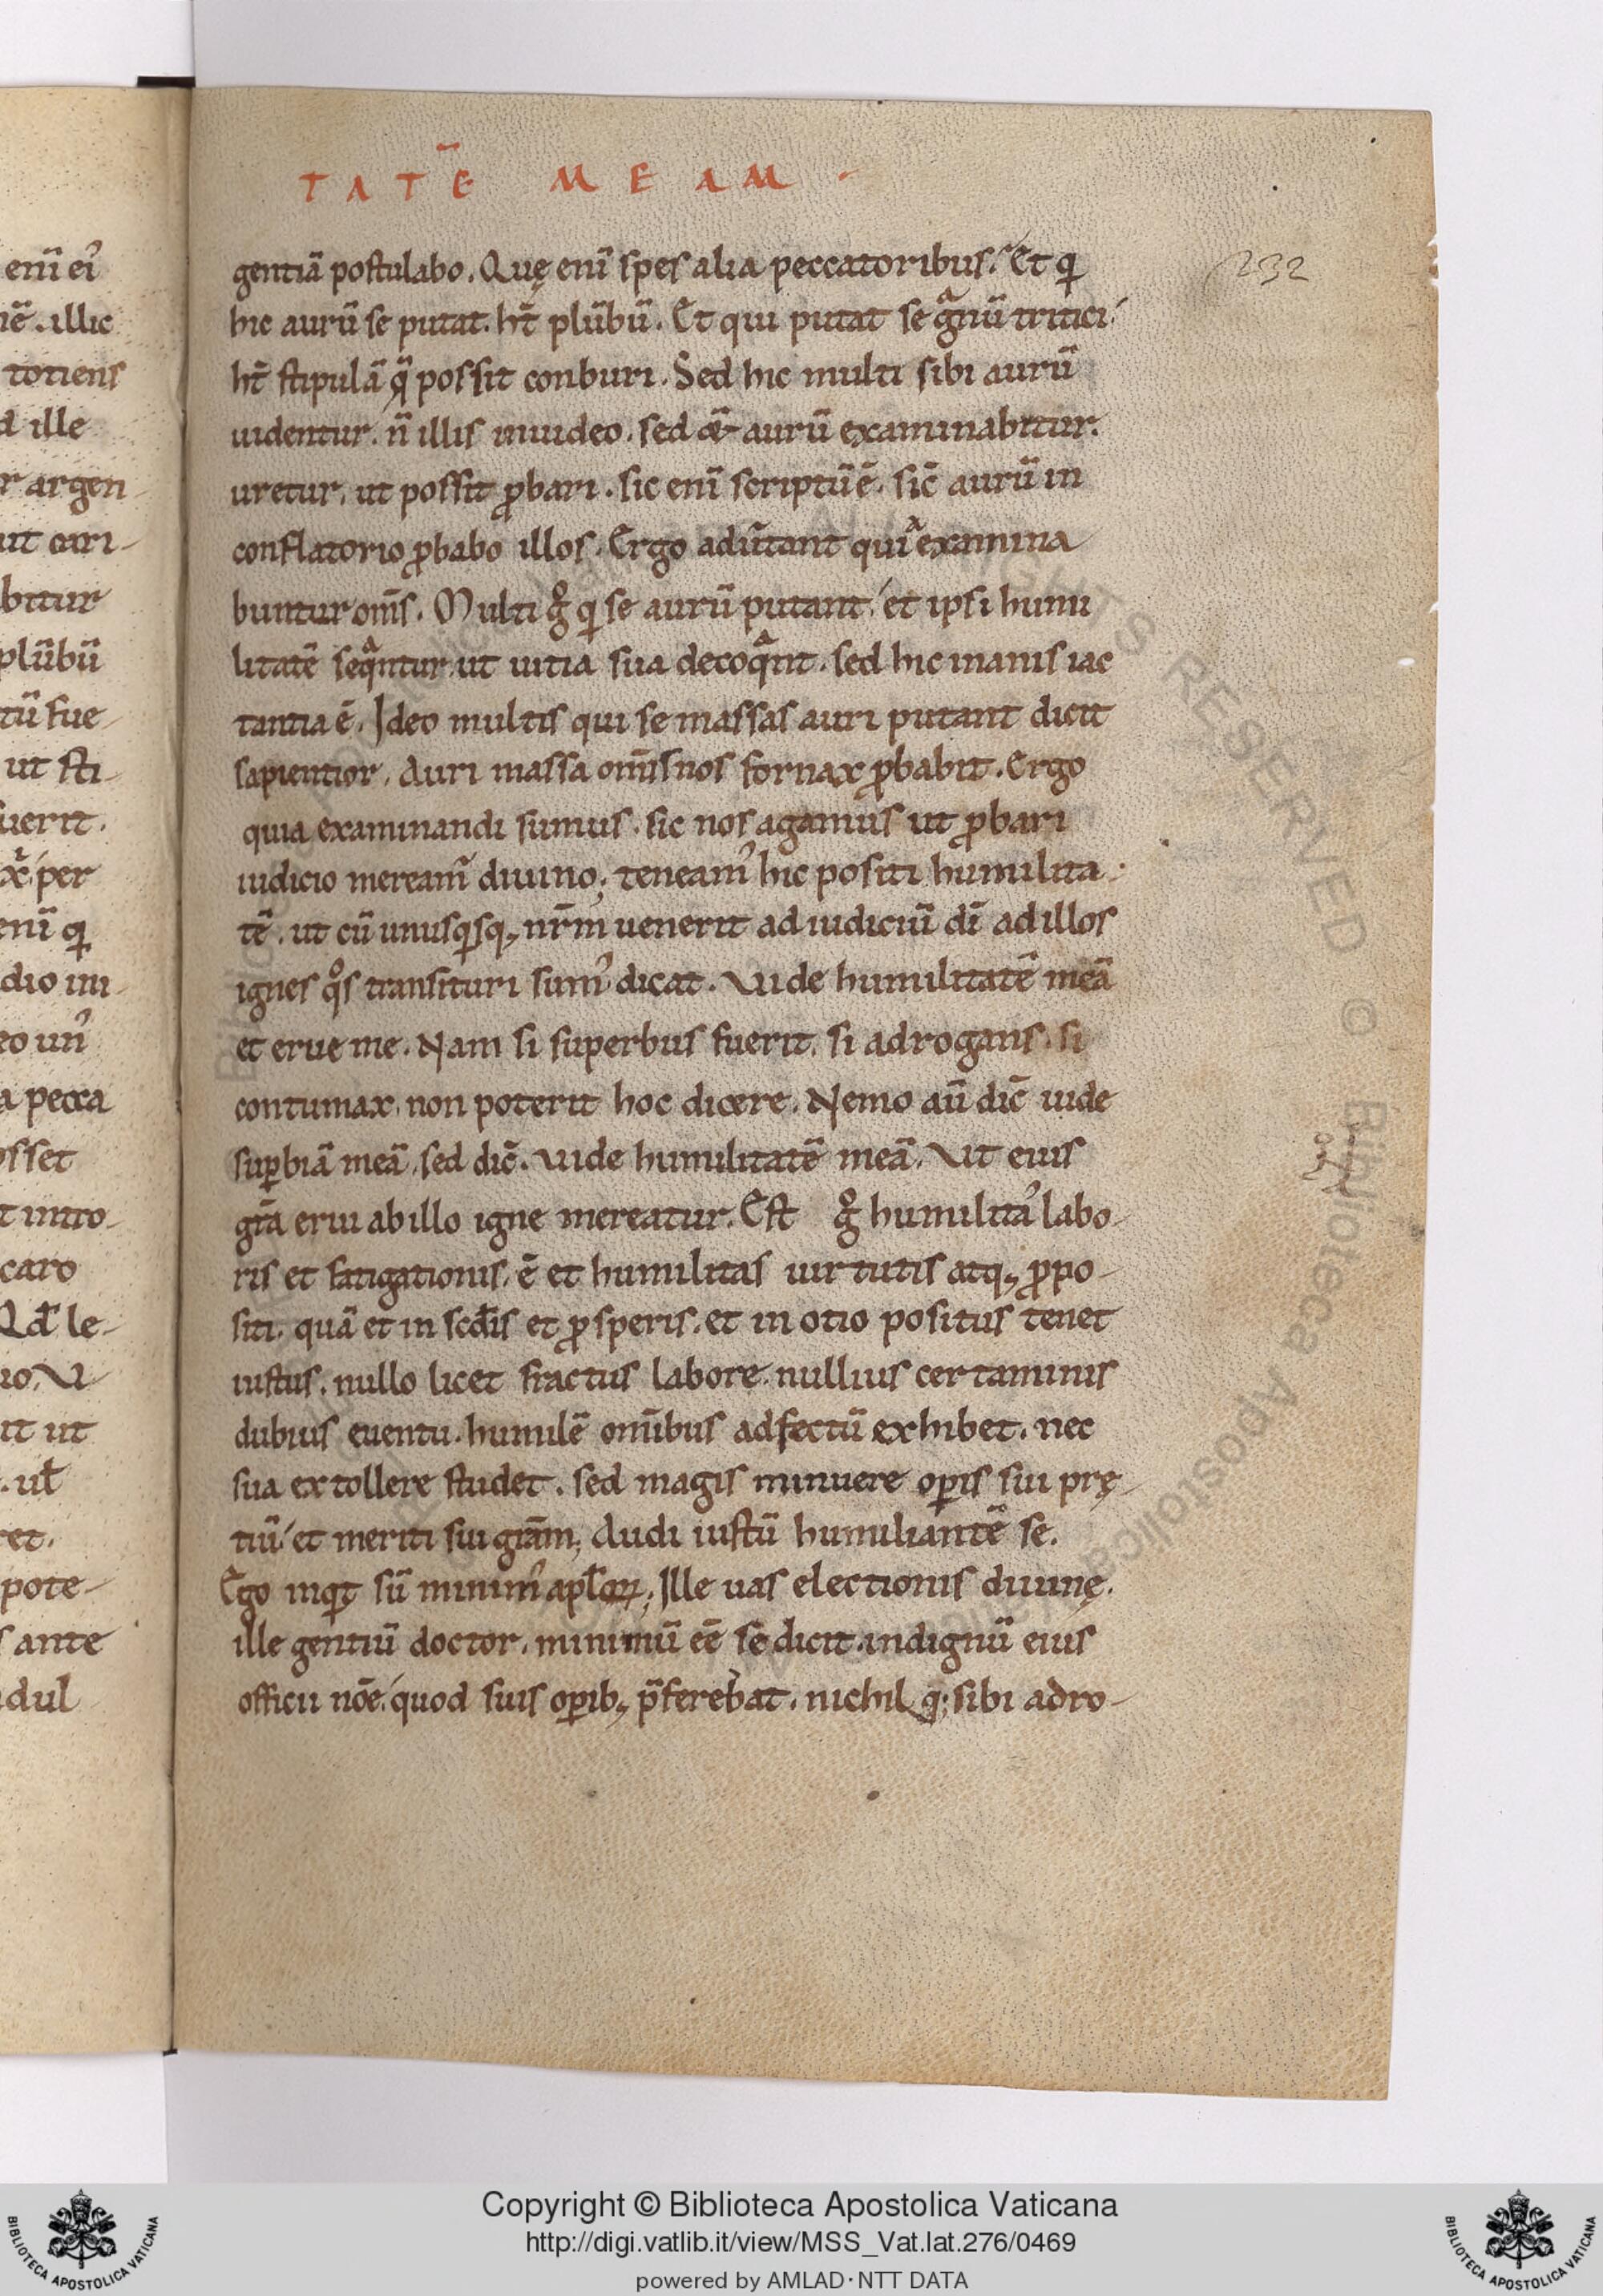 TATĒ MEAM ·
232
gentiā postulabo. Quę enī spes alia peccatoribus. Et qi
hic aurū se putat. ht̄ plūbū. Et qui putat se gͣnū tritici.
ht̄ stipulā q̄ possit conburi. Sed hic multi sibi aurū
uidentur. n̄ illis inuideo. sed & aurū examinabitur.
uretur. ut possit ꝓbari. sic enī scriptū ē. sic̄ aurū in
conflatorio ꝓbabo illos. Ergo aduͥtant quiͣ examina
buntur om̄s. Multi gͦ qi se aurū putant. et ipsi humi
litatē seqͣntur ut uitia sua decoqͣnt. sed hic inanis iac
tantia ē. Ideo multis qui se massas auri putant dicit
sapientior. Auri massa om̄s nos fornax ꝓbabit. Ergo
quia examinandi sumus. sic nos agamus ut ꝓbari
iudicio mereamͬ diuino; teneamꝰ hic positi humilita
tē. ut cū unusqisq; nr̄m uenerit ad iudiciū dī ad illos
ignes qͦs transituri sumꝰ dicat. Vide humilitatē meā
et erue me. Nam si superbus fuerit. si adrogans. si
contumax. non poterit hoc dicere. Nemo aū dic̄ uide
suꝑbiā meā. sed dic̄. Vide humilitatē meā. Vt eius
gr̄a erui ab illo igne mereatur. Est gͦ humilitaꝰ labo
ris et fatigationis. ē et humilitas uirtutis atq; ꝓpo
siti. quā et in scd̄is et ꝓsperis. et in otio positus tenet
iustus. nullo licet fractus labore. nullius certaminis
dubius euentu. humilē om̄ibus adfectū exhibet. nec
sua extollere studet. sed magis minuere oꝑis sui prę
tiū et meriti sui gr̄am; Audi iustū humiliantē se.
Ego inqit sū minimꝰ apl̄oꝝ; Ille uas electionis diuinę.
ille gentiū doctor. minimū eē se dicit. indignū eius
officii nōe. quod suis oꝑib; p̄ferebat. nichilq; sibi adro
Copyright © Biblioteca Apostolica Vaticana
http://digi.vatlib.it/view/MSS_Vat.lat.276/0469
powered by AMLAD·NTT DATA